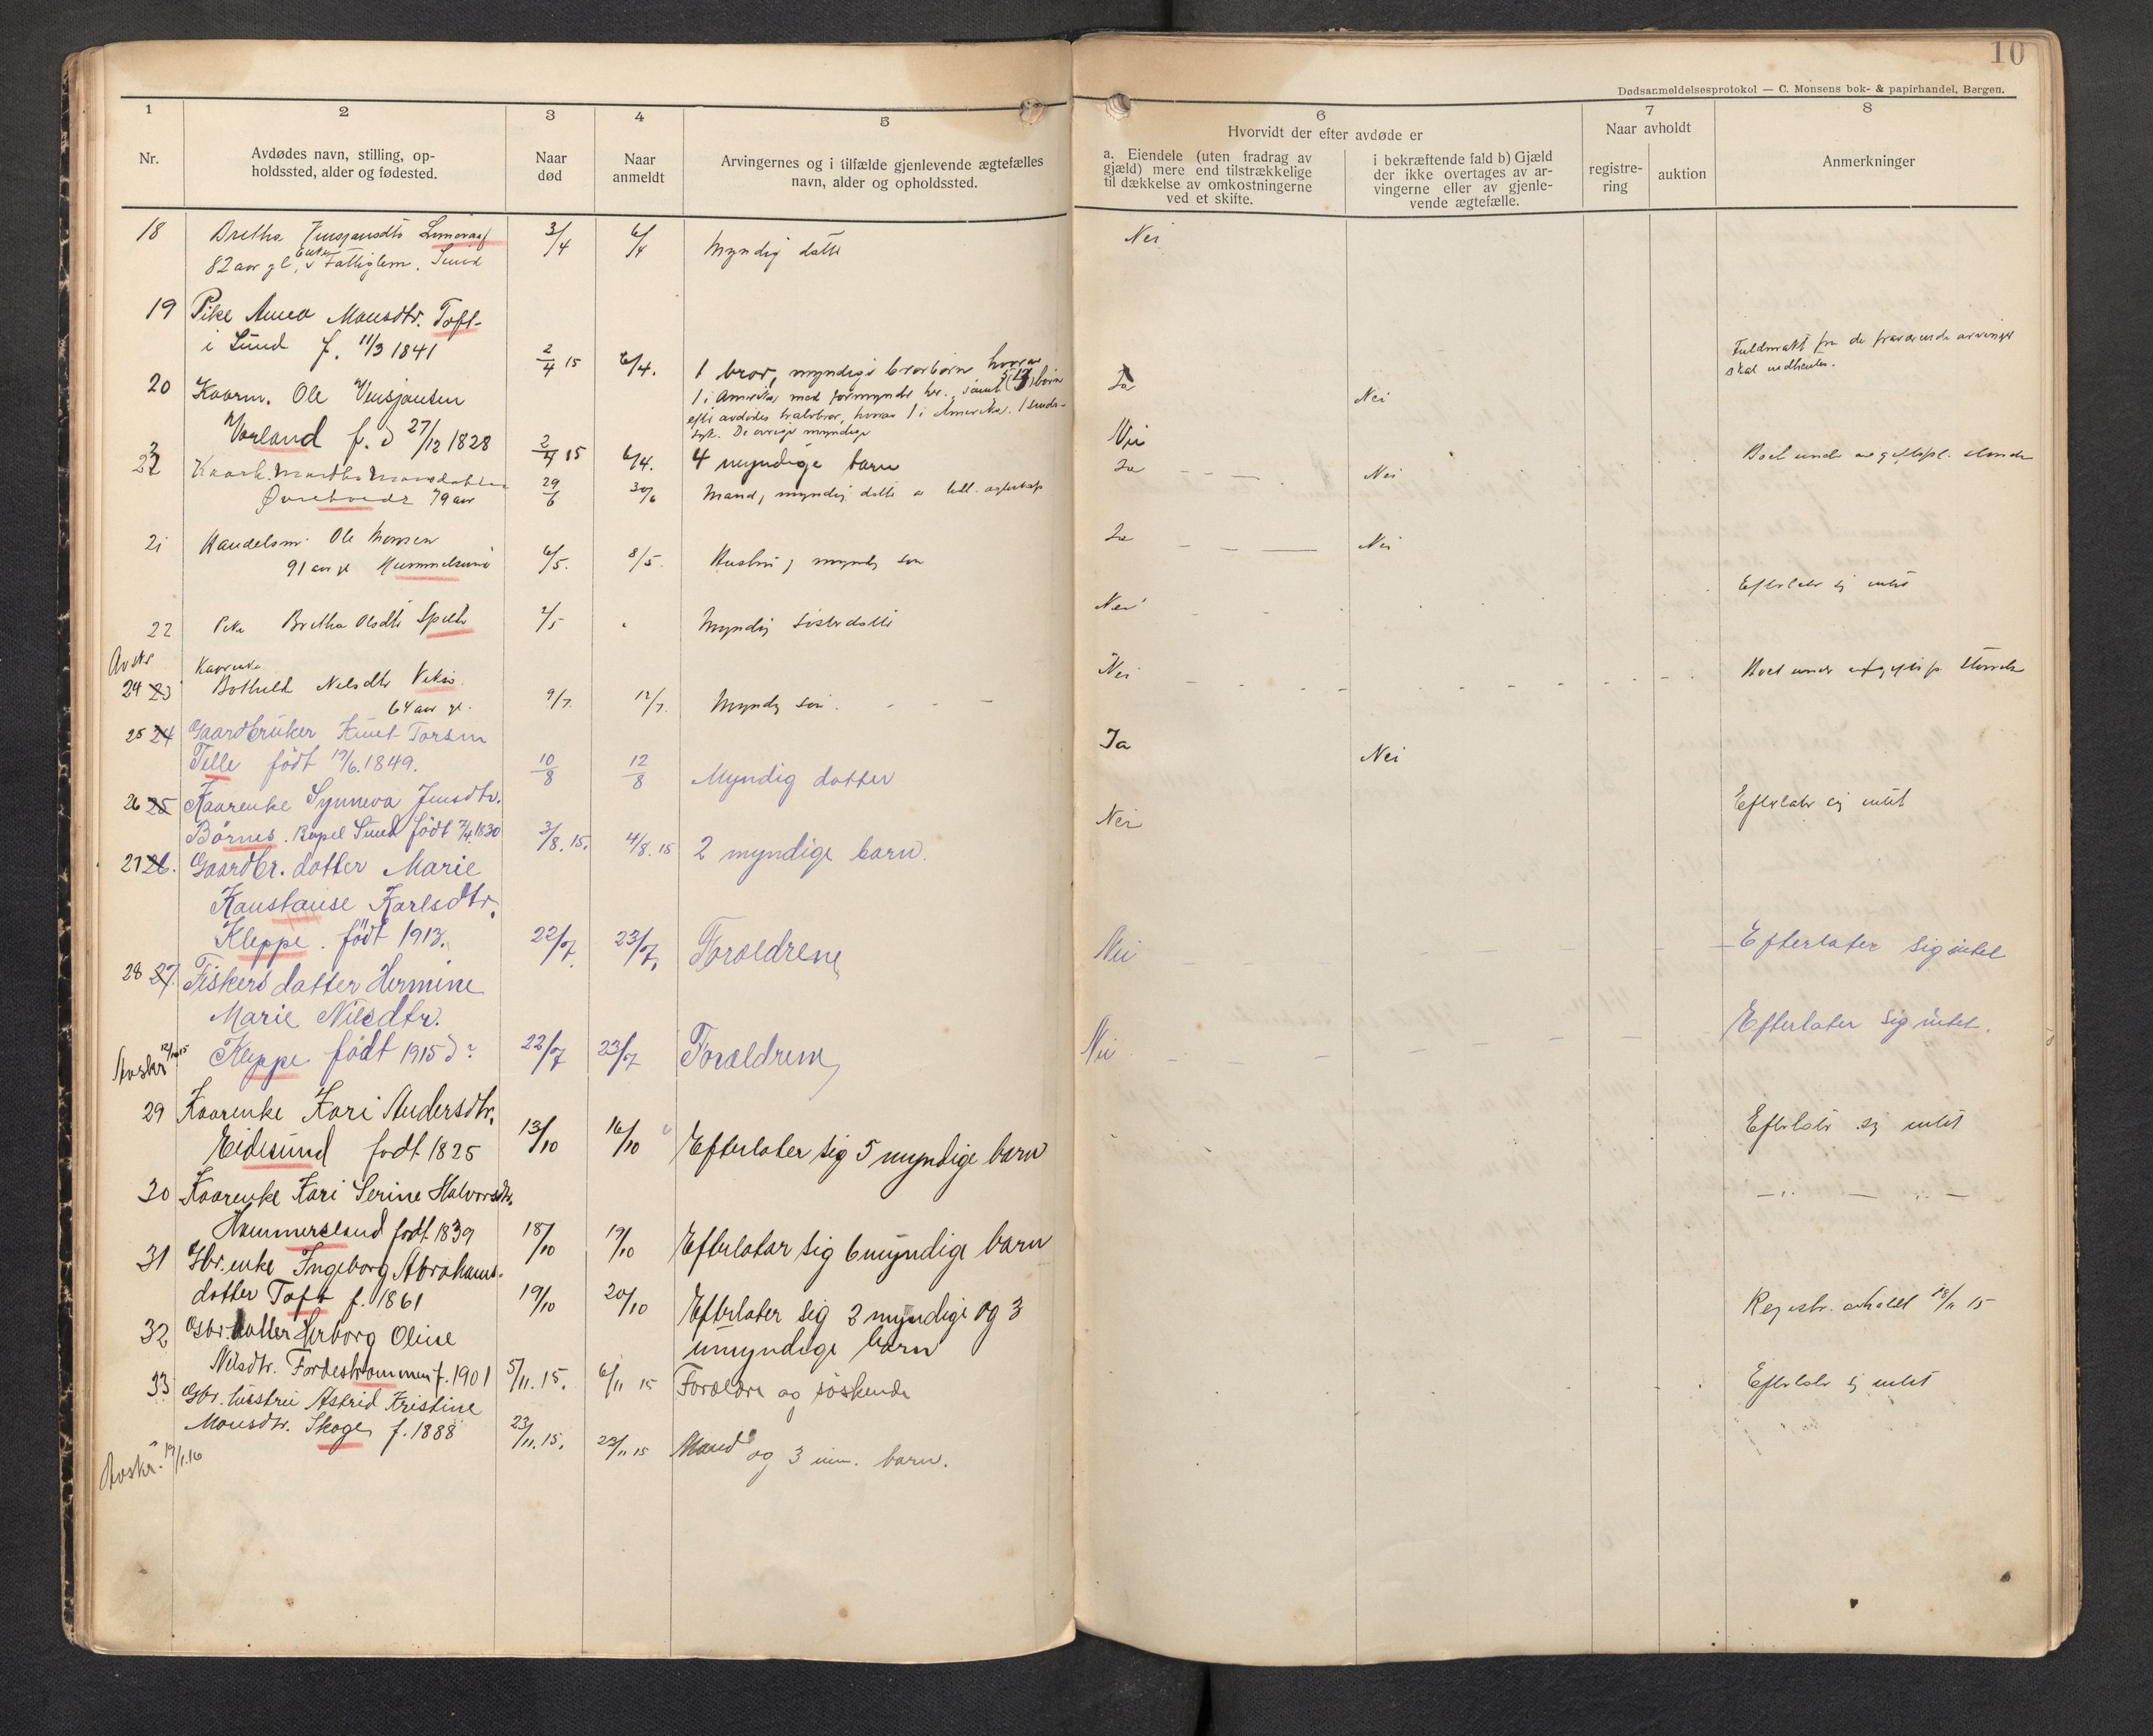 10
Dødsanmeldelsesprotokol — C. Monsens bok- & papirhandel, Bergen.
1 2 3 4 5 6 7 8
Nr.
Avdødes navn, stilling, op-
holdssted, alder og fødested.
Naar
død
Naar
anmeldt
Arvingernes og i tilfælde gjenlevende ægtefælles
navn, alder og opholdssted.
Hvorvidt der efter avdøde er
a. Eiendele (uten fradrag av
gjæld) mere end tilstrækkelige
til dækkelse av omkostningerne
ved et skifte.
i bekræftende fald b) Gjæld
der ikke overtages av ar-
vingerne eller av gjenle-
vende ægtefælle.
Naar avholdt
registre-
ring
auktion
Anmerkninger
18 Bretha 3/4 6/4 Myndig datter Nei
82 aar gl, Fattiglem. Sund
19 Pike Anna Monsdtr. Toft-
i Sund f. 11/3 1841 2/4 15 6/4. 1 bror, myndige brorbørn hvorav
1 i Amerika med formynder her, samt børn Ja Nei
efter avdødes halvbror, hvorav 1 i Amerika.
De øvrige myndige
Fuldmakt fra de fraværende arvinger
skal indhentes.
20 Kaarm. Ole Vensjansen
Vorland f. d 27/12 1828 2/4 15 6/4. 4 myndige barn Nei
23 Kaark. Martha Monsdatter
79 aar 29/6 30/6 Mand, myndig datter Ja Nei
21 Handelsm. Ole Monsen
91 aar gl Hummelsund 6/5. 8/5. Hustru, myndig søn Ja Nei
22 Pike Bretha Olsdtr Speld 2/5 Myndig søsterdatter Nei Efterlater sig intet
Avskr
24 23 Kaarenke
Bothild Nilsdtr Vikso
64 aar gl. 9/7. 12/7. Myndig søn. Nei
25 24 Gaardbruker Knut Torsen
Telle født 19/6. 1849. 10/8 12/8 Myndig datter Ja Nei
26 25 Kaarenke Synneva Jensdtr.
Børnes. Kapel Sund født 2/4 1830 3/8. 15. 4/8. 15 2 myndige barn. Nei Efterlater sig intet
27 26. Gaardbr. datter Marie
Konstanse Karlsdtr.
Kleppe. født 1913. 22/7. 23/7. Forældrene Nei Efterlater sig intet
28 27. Fiskers datter Hermine
Marie Nilsdtr.
Kleppe født 1915 22/7 23/7 Forældrene Nei Efterlater sig intet.
Avskr 12/10 15
29 Kaarenke Kari Andersdtr.
Eidesund født 1825 13/10 16/10 Efterlater sig 5 myndige barn Efterlater sig intet
30 Kaarenke Kari Serine Halvorsdtr.
Hammersland født 1839 18/10 19/10 Efterlatar sig 6 myndige barn — „ — „ —
31 Gbr. enke Ingeborg Abrahams-
datter Toft f. 1861 19/10 20/10 Efterlater sig 2 myndige og 3
umyndige barn
Registr. avholdt 18/11 15
32 Gbr. datter Herborg Oline
Nilsdtr. Fordestrommen f. 1901 5/11. 15. 6/11 15 Forældre og søskende Efterlater sig intet
33 Gbr. hustru Astrid Kristine
Monsdtr. Skoge f. 1888 23/11. 15. 23/11 15 Mand og 3 um. barn.
Avskr. 19/1. 16